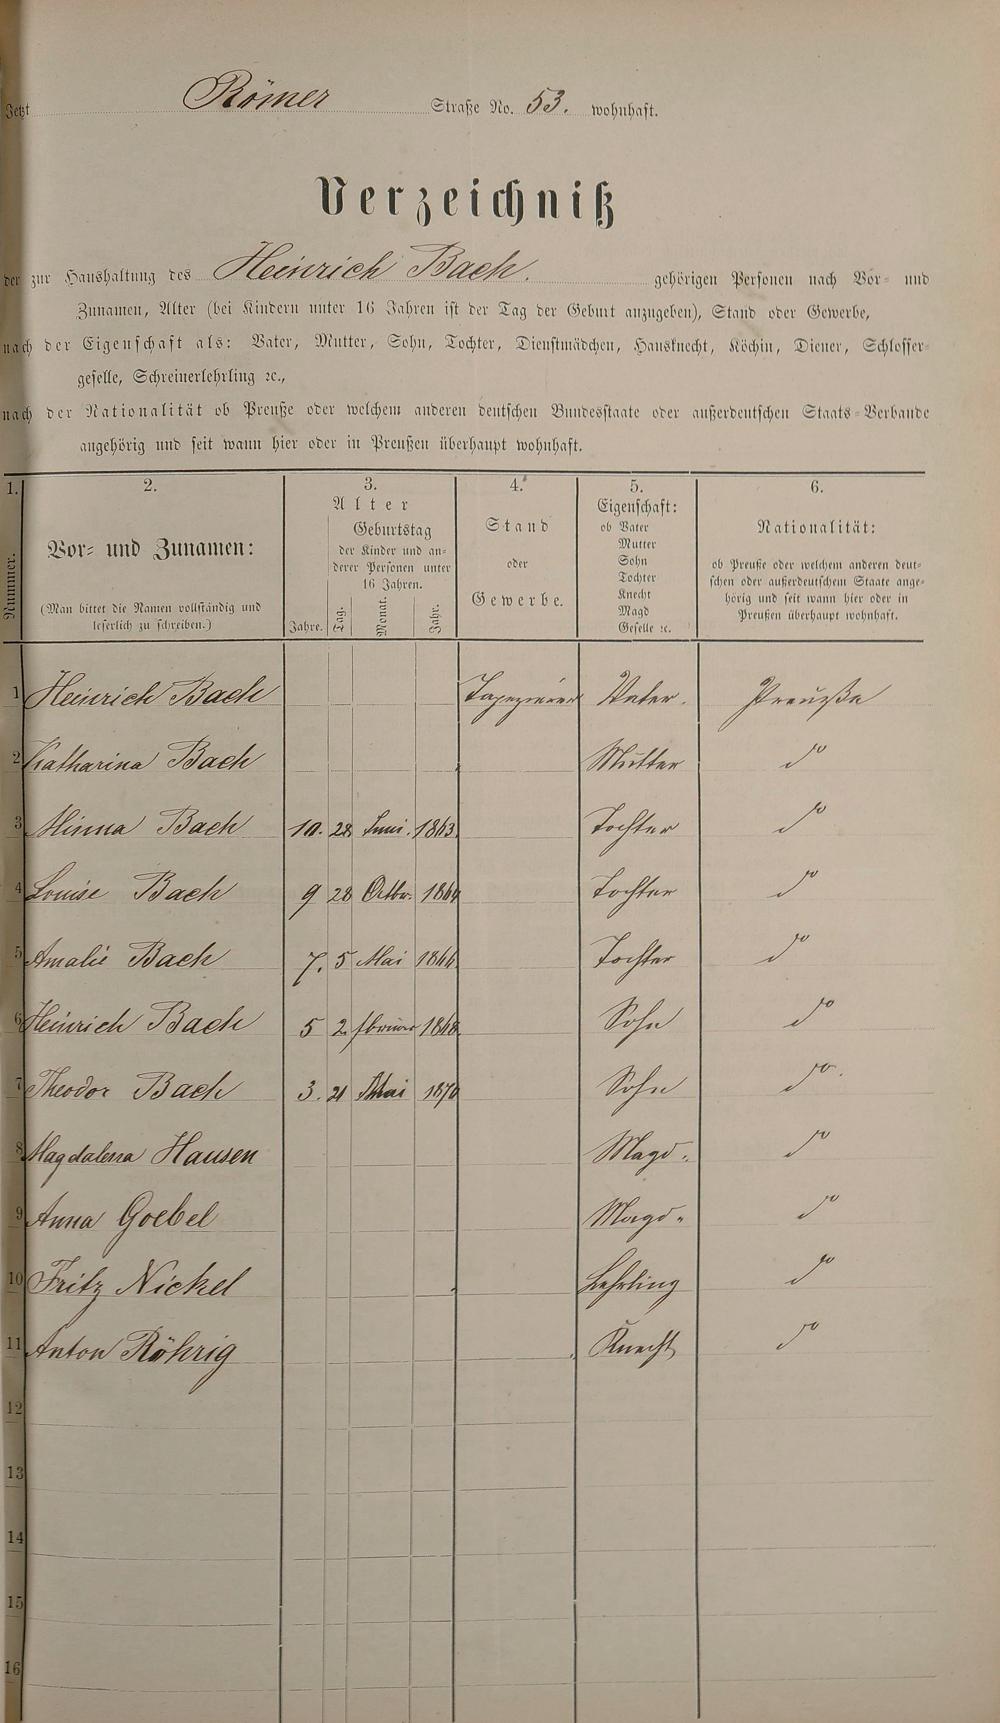 Jetzt Römer Straße No. 53. wohnhaft.
Verzeichniß
der zur Haushaltung des Heinrich Bach. gehörigen Personen nach Vor- und
Zunamen, Alter (bei Kindern unter 16 Jahren ist der Tag der Geburt anzugeben), Stand oder Gewerbe,
nach der Eigenschaft als: Vater, Mutter, Sohn, Tochter, Dienstmädchen, Hausknecht, Köchin, Diener, Schlosser-
geselle, Schreinerlehrling ꝛc.,
nach der Nationalität ob Preuße oder welchem anderen deutschen Bundesstaate oder außerdeutschen Staats-Verbande
angehörig und seit wann hier oder in Preußen überhaupt wohnhaft.
1. 2. 3. 4. 5. 6.
Nummer.
Vor- und Zunamen:
(Man bittet die Namen vollständig und
leserlich zu schreiben.)
Alter
Geburtstag
der Kinder und an-
derer Personen unter
16 Jahren.
Jahre. Tag. Monat. Jahr.
Stand
oder
Gewerbe.
Eigenschaft:
ob Vater
Mutter
Sohn
Tochter
Knecht
Magd
Geselle ꝛc.
Nationalität:
ob Preuße oder welchem anderen deut-
schen oder außerdeutschem Staate ange-
hörig und seit wann hier oder in
Preußen überhaupt wohnhaft.
1 Heinrich Bach Tapezierer Vater. Preuße
2 Katharina Bach Mutter do
3 Minna Bach 10. 28 Juni. 1863. Tochter do
4 Louise Bach 9 28 Octbr. 1864 Tochter do
5 Amalie Bach 7. 5 Mai 1866 Tochter do
6 Heinrich Bach 5 2 1868. Sohn do
7 Theodor Bach 3. 21 Mai 1870 Sohn do.
8 Magdalena Hausen Magd. do
9 Anna Goebel Magd. do
10 Fritz Nickel Lehrling do
11 Anton Röhrig Knecht do
12
13
14
15
16